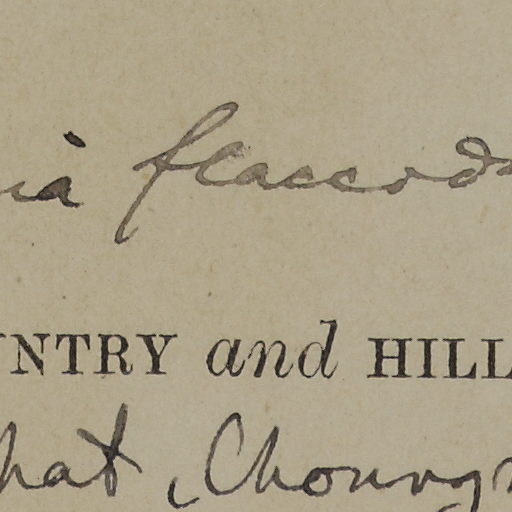 ia flaccod
UNTRY and HILL
hat, Choung